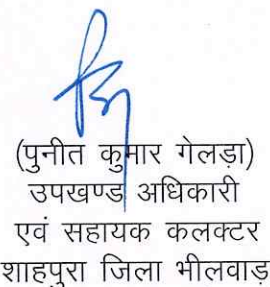 (पुनीत कुमार गेलड़ा)
उपखण्ड अधिकारी
एवं सहायक कलक्टर
शाहपुरा जिला भीलवाड़